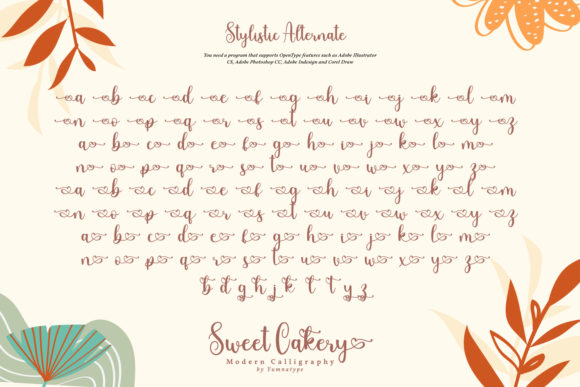 Stylistic Alternate
You need a program that supports OpenType features such as Adobe Illustrator
CS, Adobe Photoshop CC, Adobe Indesign and Corel Draw
a b c d e f g h i j k l m
n o p q r s t u v w x y z
a b c d e f g h i j k l m
n o p q r s t u v w x y z
a b c d e f g h i j k l m
n o p q r s t u v w x y z
a b c d e f g h i j k l m
n o p q r s t u v w x y z
b d g h j k t t y z
Sweet Cakery
Modern Calligraphy
by Yumnatype